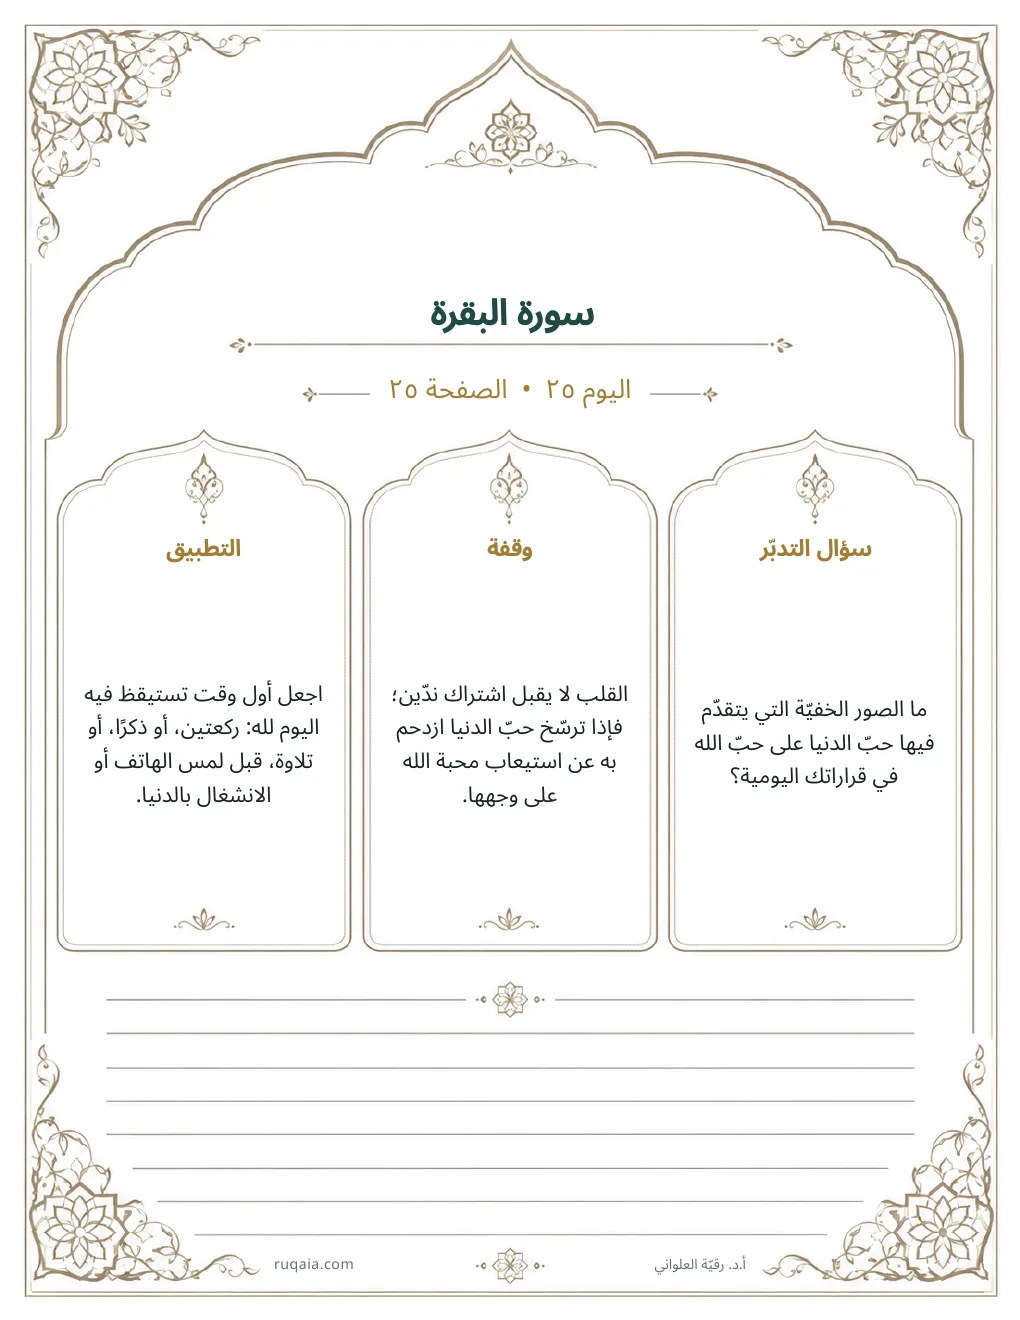 سورة البقرة
اليوم ٢٥ • الصفحة ٢٥
سؤال التدبّر
ما الصور الخفيّة التي يتقدّم
فيها حبّ الدنيا على حبّ الله
في قراراتك اليومية؟
وقفة
القلب لا يقبل اشتراك ندّين؛
فإذا ترسّخ حبّ الدنيا ازدحم
به عن استيعاب محبة الله
على وجهها.
التطبيق
اجعل أول وقت تستيقظ فيه
اليوم لله: ركعتين، أو ذكرًا، أو
تلاوة، قبل لمس الهاتف أو
الانشغال بالدنيا.
أ.د. رقيّة العلواني
ruqaia.com